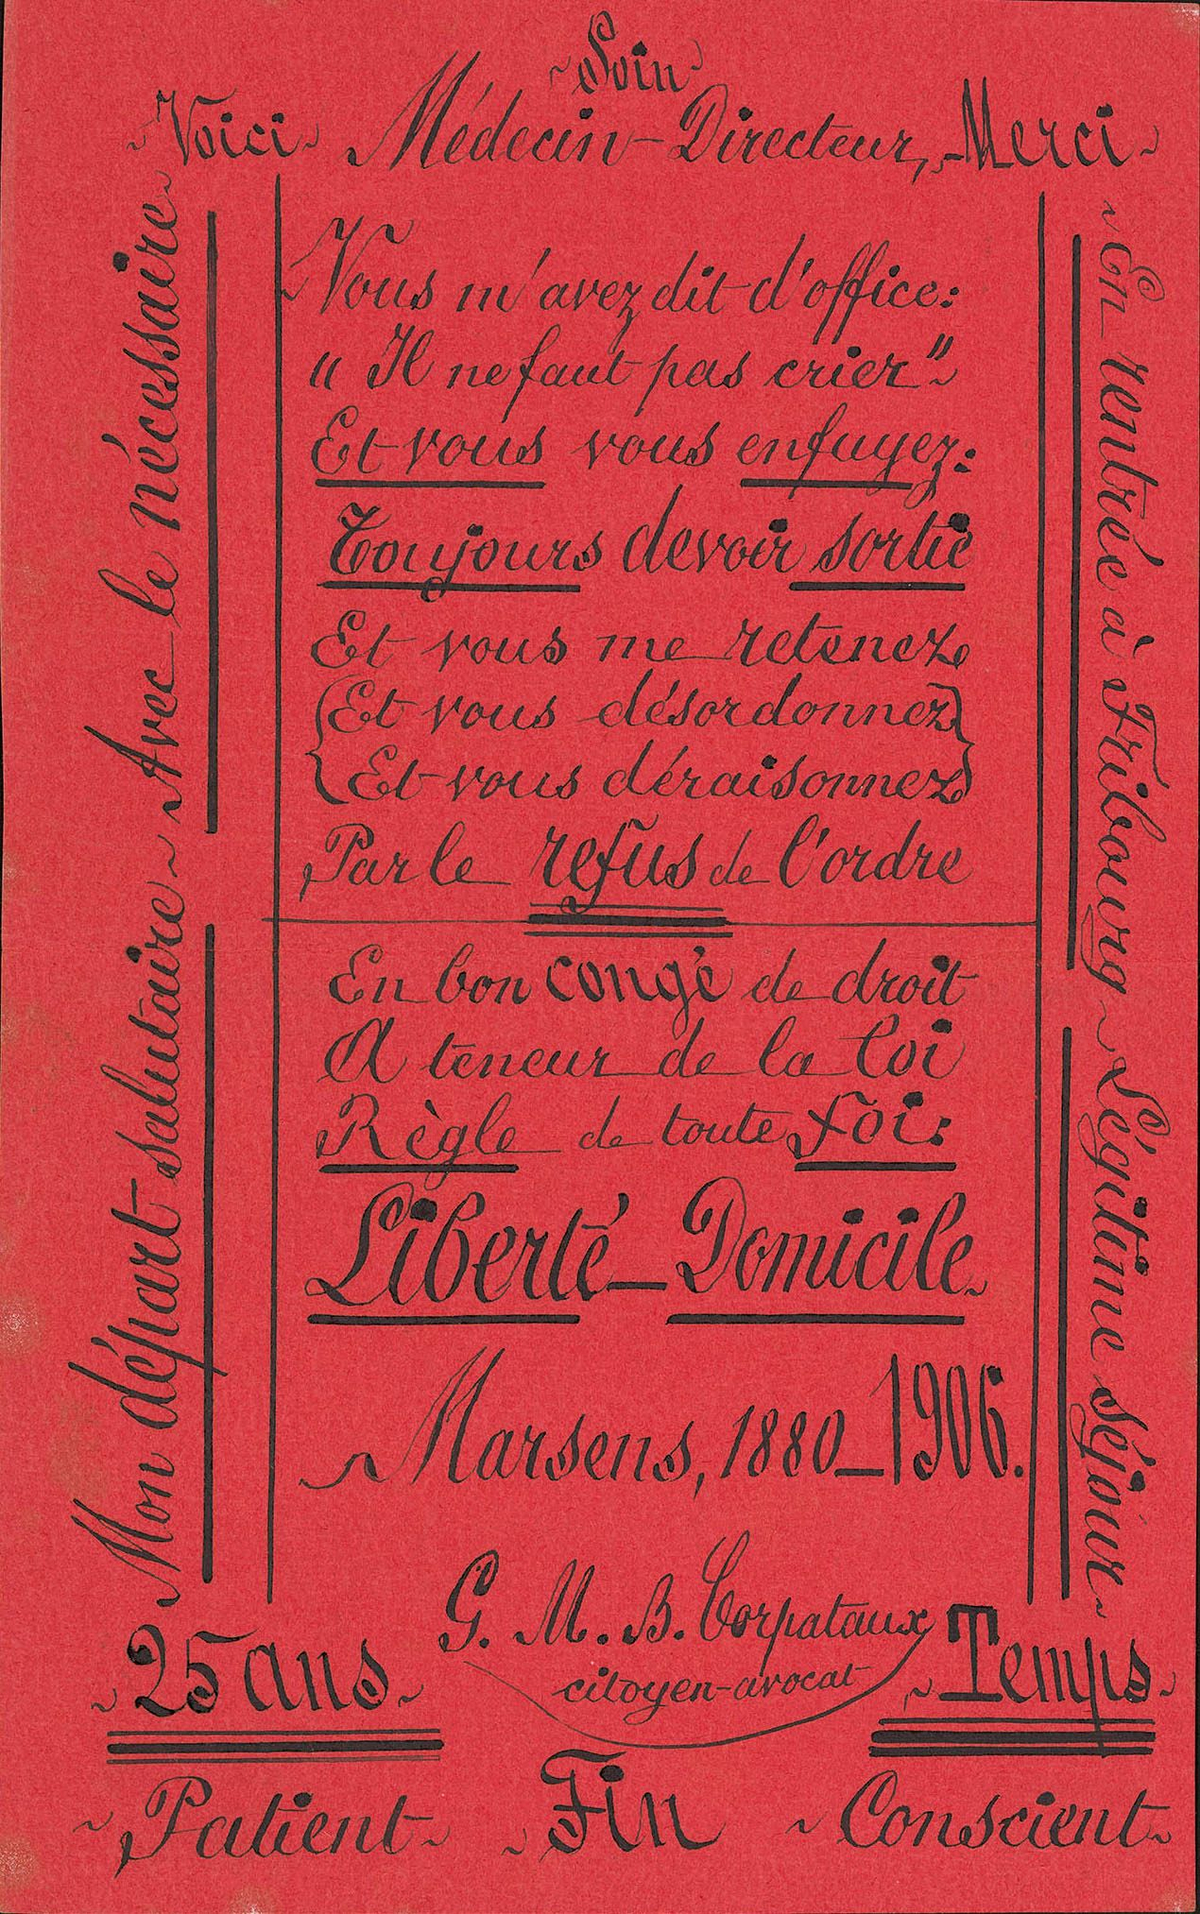 ~ Soin ~
~ Voici ~ Médecin-Directeur, ~ Merci ~
Mon départ salutaire ~ Avec le nécessaire ~
Vous m'avez dit d'office:
"Il ne faut pas crier"
Et vous vous enfuyez:
Toujours devoir sortie
Et vous me retenez
{Et vous désordonnez}
{Et vous déraisonnez}
Par le refus de l'ordre
En bon congé de droit
A teneur de la loi
Règle de toute foi:
Liberté – Domicile
~ Marsens, 1880–1906.
~ En rentrée à Fribourg ~ Légitime séjour ~
G. M. B. Corpataux
citoyen-avocat
~ 25 ans ~
~ Temps ~
~ Patient ~ Fin ~ Conscient ~